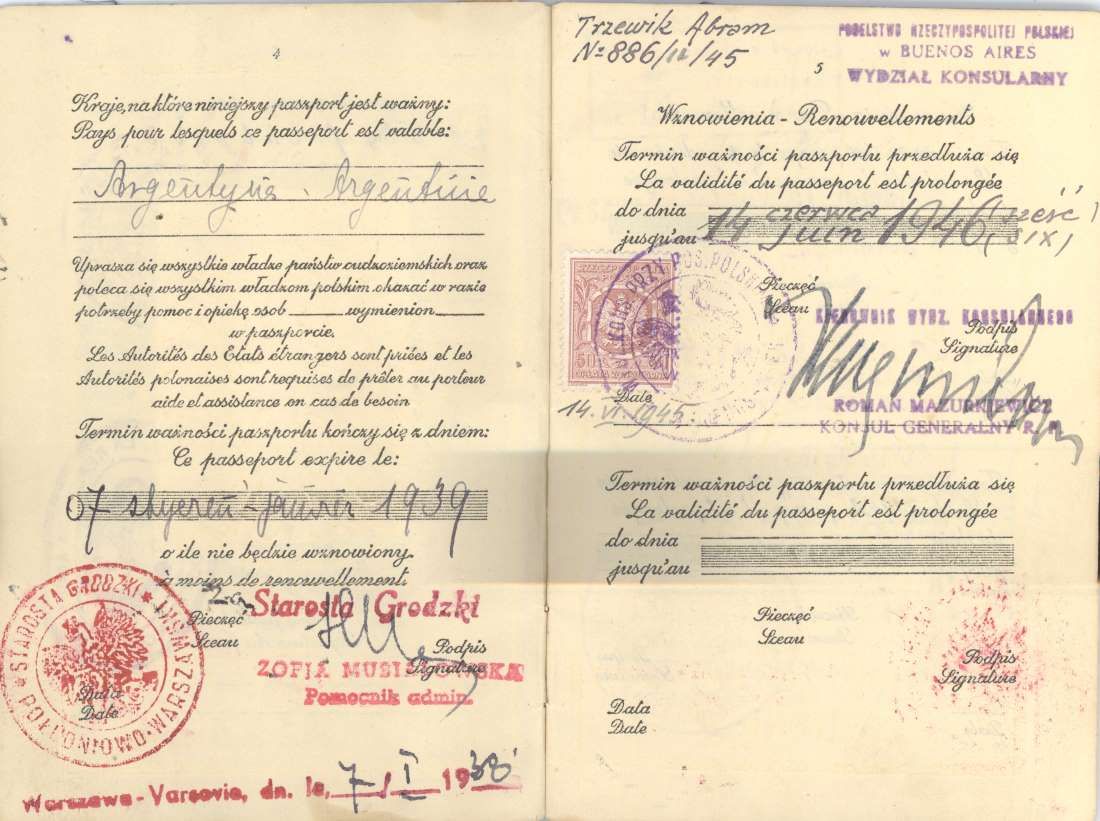 4
Kraje, na które niniejszy paszport jest ważny:
Pays pour lesquels ce passeport est valable:
Argentyna - Argentine
Uprasza się wszystkie władze państw cudzoziemskich oraz
poleca się wszystkim władzom polskim okazać w razie
potrzeby pomoc i opiekę osob wymienion
w paszporcie.
Les Autorités des Etats étrangers sont priées et les
Autorités polonaises sont requises de prêter au porteur
aide et assistance en cas de besoin
Termin ważności paszportu kończy się z dniem:
Ce passeport expire le:
07 styczeń - janvier 1939
o ile nie będzie wznowiony.
à moins de renouvellement.
Starosta Grodzki
Pieczęć
Sceau
Podpis
Signature
ZOFJA
Pomocnik admin.
STAROSTA GRODZKI
POŁUDNIOWO-WARSZAWSKI
Data
Date
Warszawa - Varsovie, dn. le, 7/I 1938
Trzewik Abram
№ 886/II/45
POSELSTWO RZECZYPOSPOLITEJ POLSKIEJ
w BUENOS AIRES
WYDZIAŁ KONSULARNY
5
Wznowienia - Renouvellements
Termin ważności paszportu przedłuża się
La validité du passeport est prolongée
do dnia
jusqu'au
14 czerwca 1946 (sześć)
juin (six)
Pieczęć
Sceau
KIEROWNIK WYDZ. KONSULARNEGO
Podpis
Signature
50
Date
14.VI.1945.
ROMAN MAZURKIEWICZ
KONSUL GENERALNY R.P.
Termin ważności paszportu przedłuża się
La validité du passeport est prolongée
do dnia
jusqu'au
Pieczęć
Sceau
Podpis
Signature
Data
Date